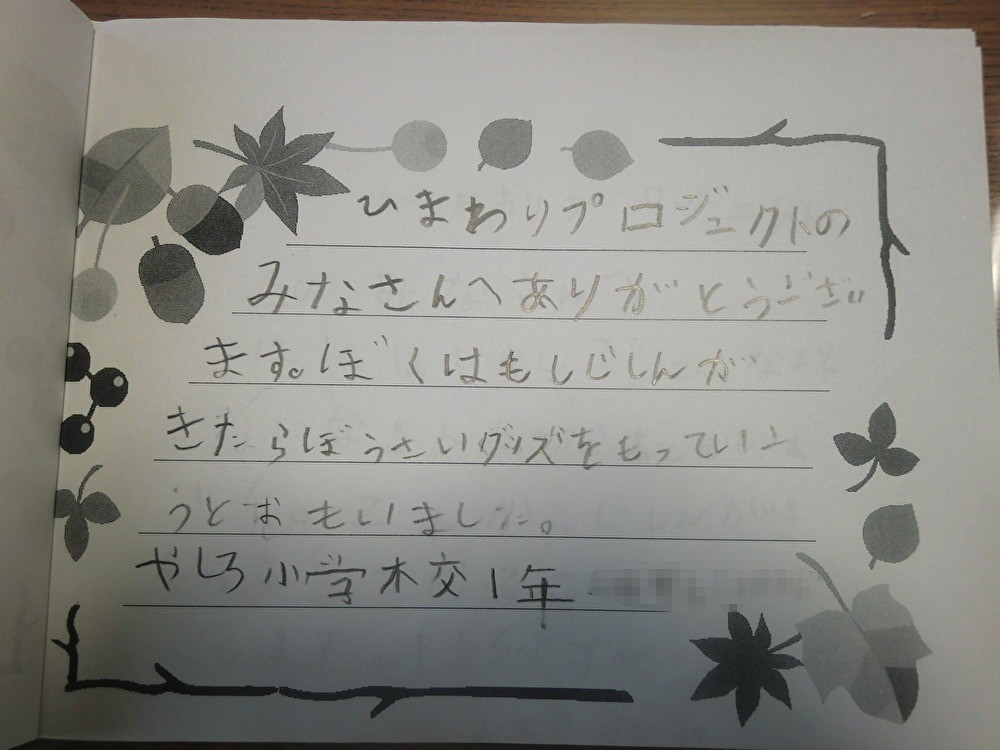 ひまわりプロジェクトの
みなさんへありがとうござい
ます。ぼくはもしじしんが
きたらぼうさいグッズをもっていこ
うとおもいました。
やしろ小学校1年